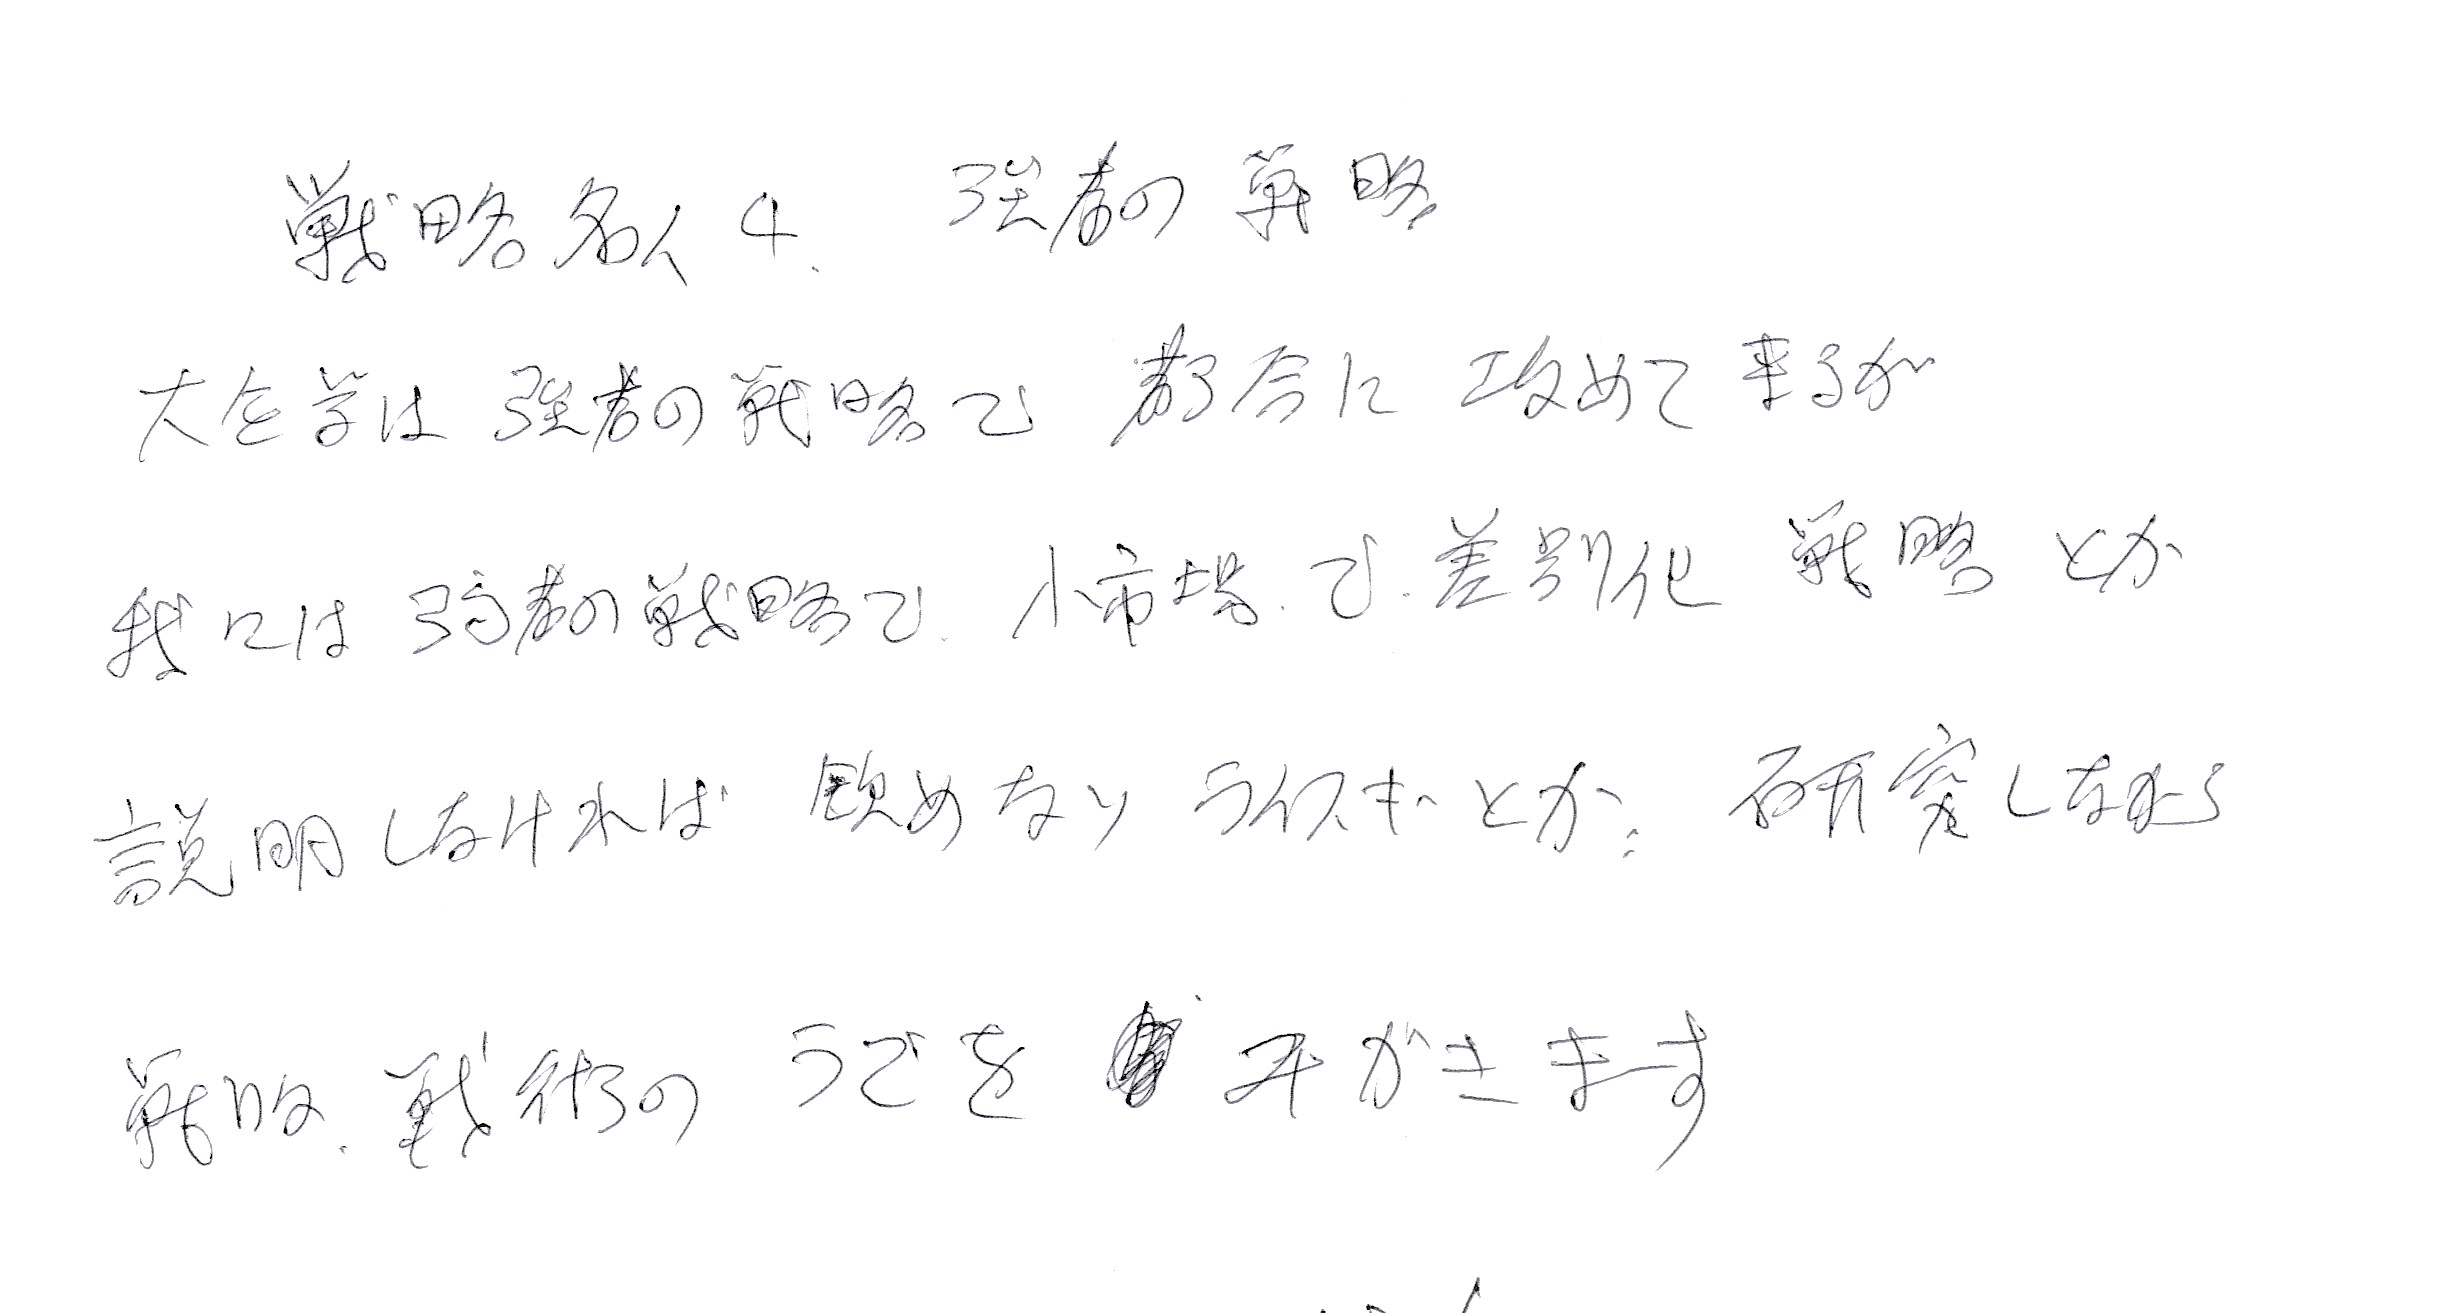 戦略名人4. 強者の戦略
大企業は強者の戦略で都会に攻めて来るが
我々は弱者の戦略で、小市場で差別化戦略とか
説明しなければ飲めない とか、研究しながら
戦略、戦術のうでを みがきます